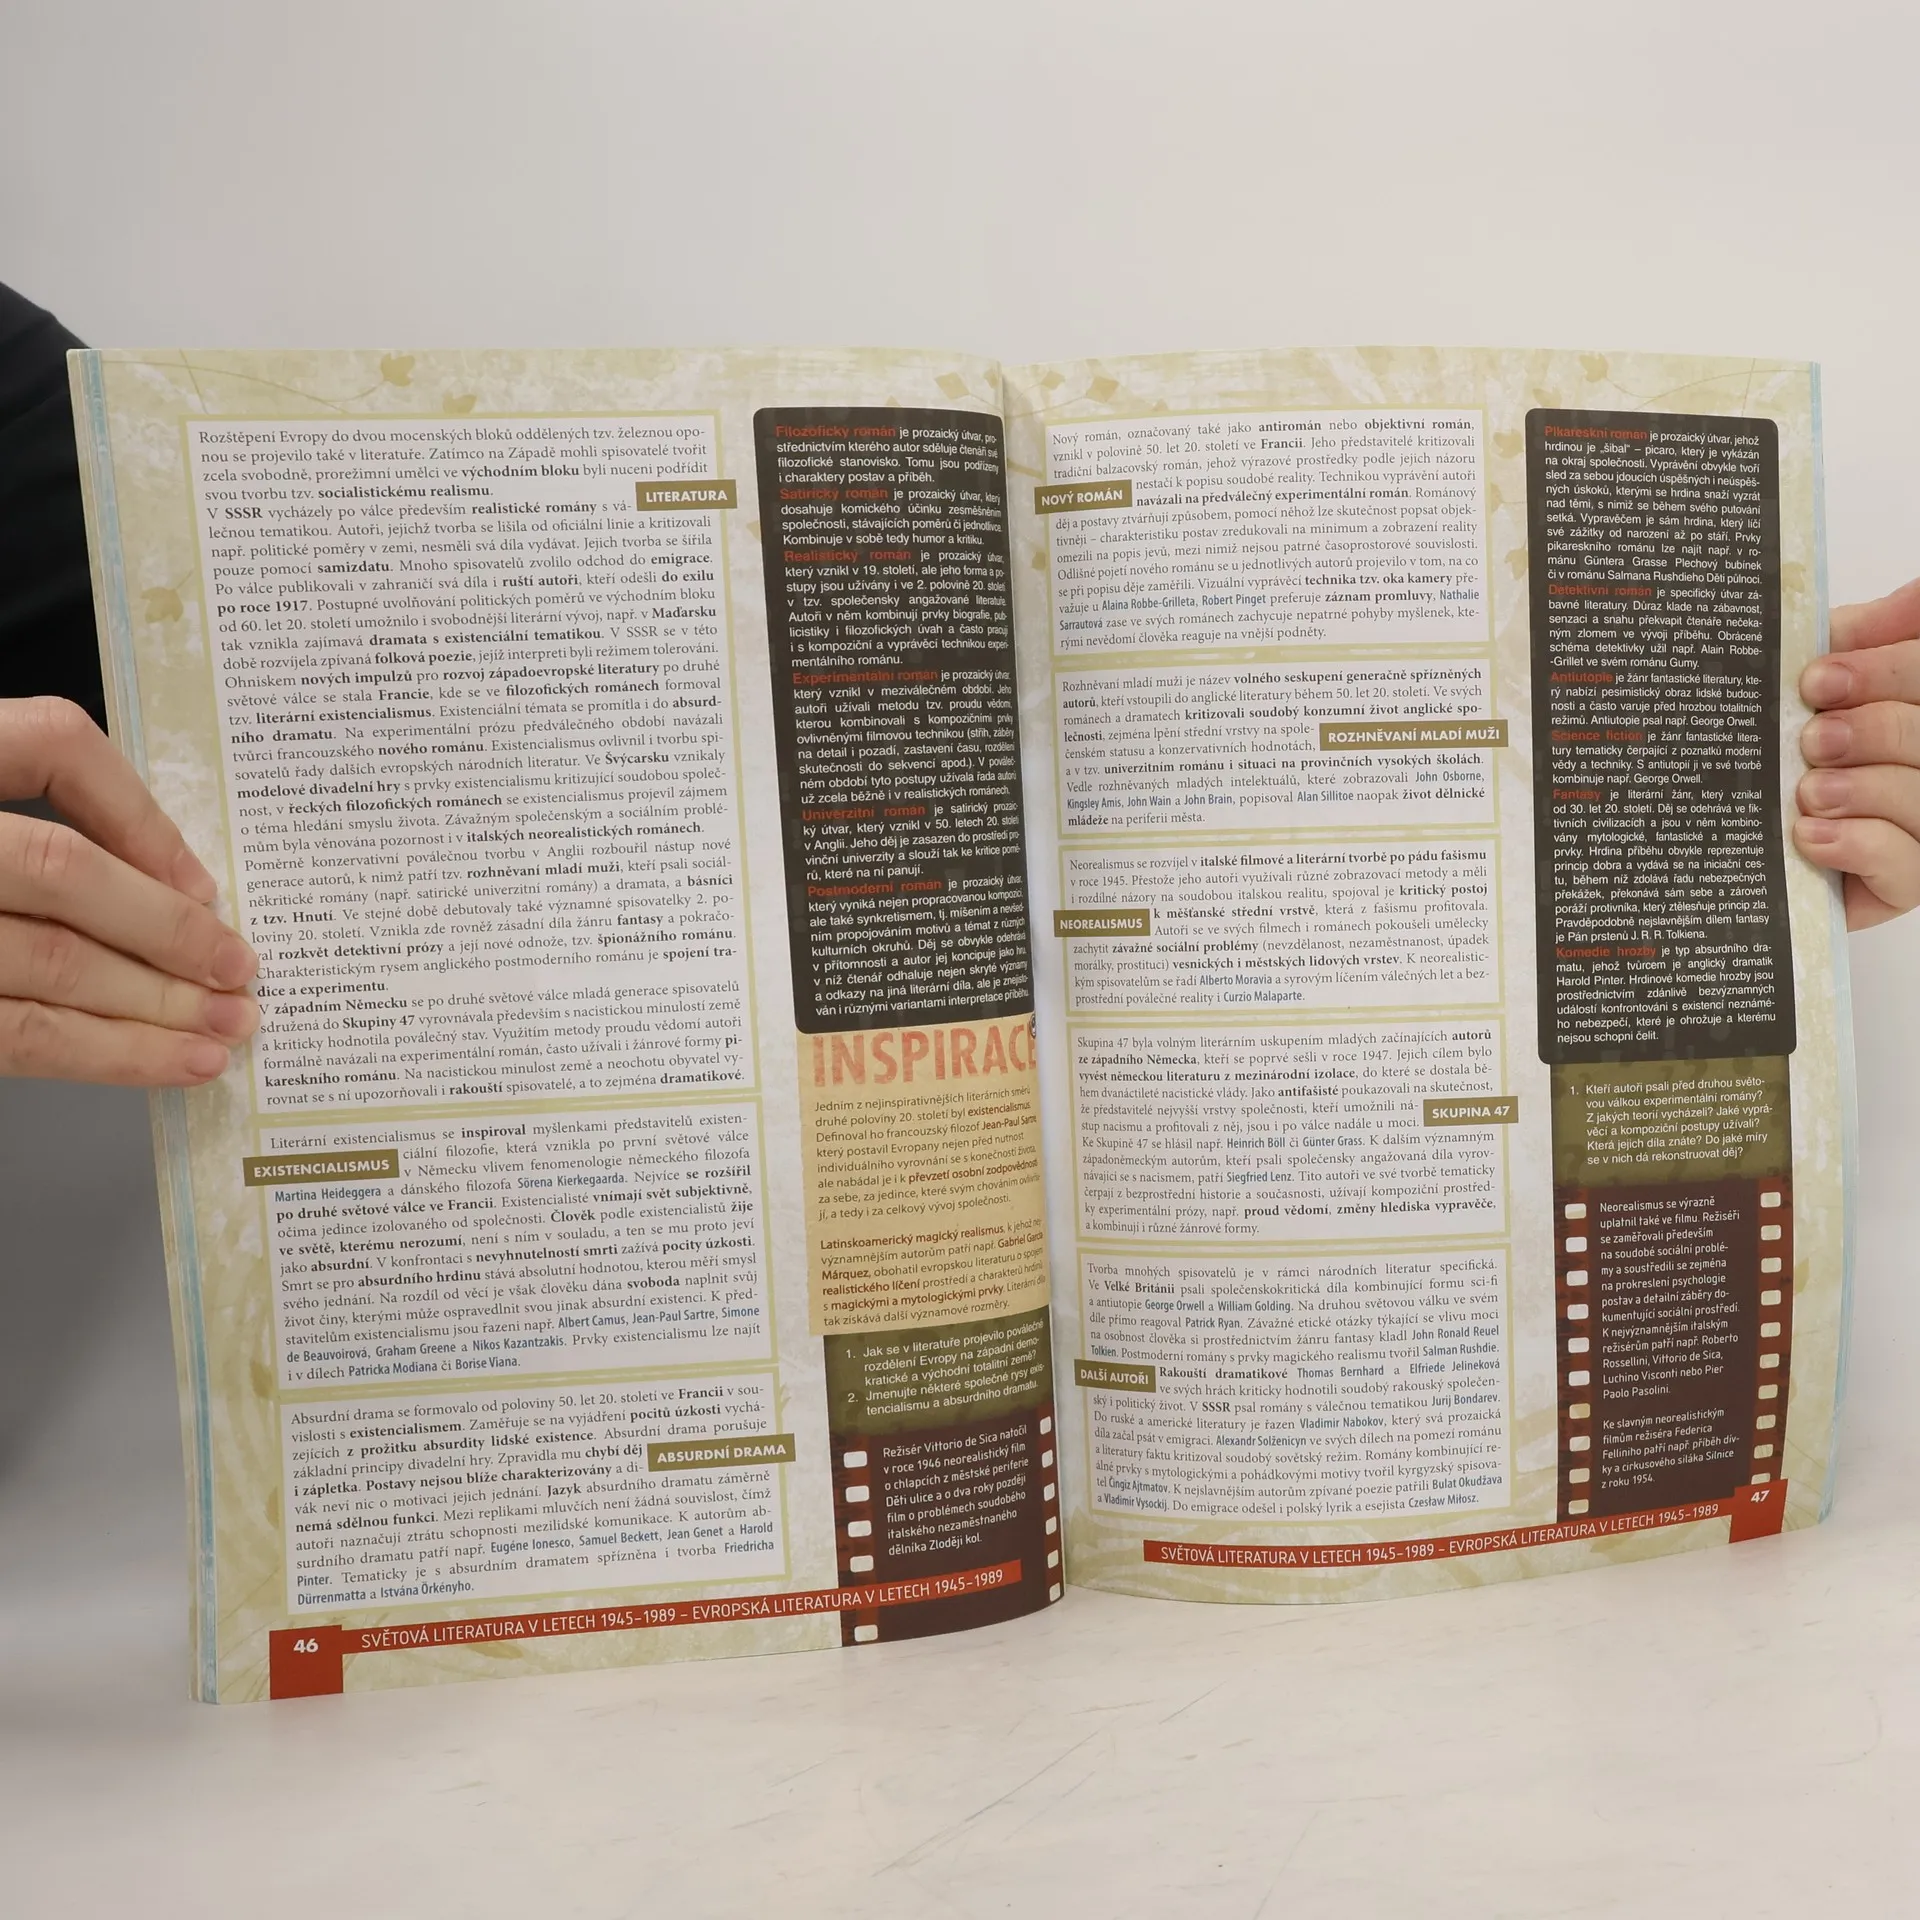 Rozštěpení Evropy do dvou mocenských bloků oddělených tzv. železnou opo-
nou se projevilo také v literatuře. Zatímco na Západě mohli spisovatelé tvořit
zcela svobodně, prorežimní umělci ve východním bloku byli nuceni podřídit
svou tvorbu tzv. socialistickému realismu.
LITERATURA
V SSSR vycházely po válce především realistické romány s vá-
lečnou tematikou. Autoři, jejichž tvorba se lišila od oficiální linie a kritizovali
např. politické poměry v zemi, nesměli svá díla vydávat. Jejich tvorba se šířila
pouze pomocí samizdatu. Mnoho spisovatelů zvolilo odchod do emigrace.
Po válce publikovali v zahraničí svá díla i ruští autoři, kteří odešli do exilu
po roce 1917. Postupné uvolňování politických poměrů ve východním bloku
od 60. let 20. století umožnilo i svobodnější literární vývoj, např. v Maďarsku
tak vznikla zajímavá dramata s existenciální tematikou. V SSSR se v této
době rozvíjela zpívaná folková poezie, jejíž interpreti byli režimem tolerováni.
Ohniskem nových impulzů pro rozvoj západoevropské literatury po druhé
světové válce se stala Francie, kde se ve filozofických románech formoval
tzv. literární existencialismus. Existenciální témata se promítla i do absurd-
ního dramatu. Na experimentální prózu předválečného období navázali
tvůrci francouzského nového románu. Existencialismus ovlivnil i tvorbu spi-
sovatelů řady dalších evropských národních literatur. Ve Švýcarsku vznikaly
modelové divadelní hry s prvky existencialismu kritizující soudobou společ-
nost, v řeckých filozofických románech se existencialismus projevil zájmem
o téma hledání smyslu života. Závažným společenským a sociálním problé-
mům byla věnována pozornost i v italských neorealistických románech.
Poměrně konzervativní poválečnou tvorbu v Anglii rozbouřil nástup nové
generace autorů, k nimž patří tzv. rozhněvaní mladí muži, kteří psali sociál-
někritické romány (např. satirické univerzitní romány) a dramata, a básníci
z tzv. Hnutí. Ve stejné době debutovaly také významné spisovatelky 2. po-
loviny 20. století. Vznikla zde rovněž zásadní díla žánru fantasy a pokračo-
val rozkvět detektivní prózy a její nové odnože, tzv. špionážního románu.
Charakteristickým rysem anglického postmoderního románu je spojení tra-
dice a experimentu.
V západním Německu se po druhé světové válce mladá generace spisovatelů
sdružená do Skupiny 47 vyrovnávala především s nacistickou minulostí země
a kriticky hodnotila poválečný stav. Využitím metody proudu vědomí autoři
formálně navázali na experimentální román, často užívali i žánrové formy pi-
kareskního románu. Na nacistickou minulost země a neochotu obyvatel vy-
rovnat se s ní upozorňovali i rakouští spisovatelé, a to zejména dramatikové.
Literární existencialismus se inspiroval myšlenkami představitelů existen-
ciální filozofie, která vznikla po první světové válce
EXISTENCIALISMUS
v Německu vlivem fenomenologie německého filozofa
Martina Heideggera a dánského filozofa Sörena Kierkegaarda. Nejvíce se rozšířil
po druhé světové válce ve Francii. Existencialisté vnímají svět subjektivně,
očima jedince izolovaného od společnosti. Člověk podle existencialistů žije
ve světě, kterému nerozumí, není s ním v souladu, a ten se mu proto jeví
jako absurdní. V konfrontaci s nevyhnutelností smrti zažívá pocity úzkosti.
Smrt se pro absurdního hrdinu stává absolutní hodnotou, kterou měří smysl
svého jednání. Na rozdíl od věcí je však člověku dána svoboda naplnit svůj
život činy, kterými může ospravedlnit svou jinak absurdní existenci. K před-
stavitelům existencialismu jsou řazeni např. Albert Camus, Jean-Paul Sartre, Simone
de Beauvoirová, Graham Greene a Nikos Kazantzakis. Prvky existencialismu lze najít
i v dílech Patricka Modiana či Borise Viana.
Absurdní drama se formovalo od poloviny 50. let 20. století ve Francii v sou-
vislosti s existencialismem. Zaměřuje se na vyjádření pocitů úzkosti vychá-
zejících z prožitku absurdity lidské existence. Absurdní drama porušuje
základní principy divadelní hry. Zpravidla mu chybí děj
ABSURDNÍ DRAMA
i zápletka. Postavy nejsou blíže charakterizovány a di-
vák neví nic o motivaci jejich jednání. Jazyk absurdního dramatu záměrně
nemá sdělnou funkci. Mezi replikami mluvčích není žádná souvislost, čímž
autoři naznačují ztrátu schopnosti mezilidské komunikace. K autorům ab-
surdního dramatu patří např. Eugéne Ionesco, Samuel Beckett, Jean Genet a Harold
Pinter. Tematicky je s absurdním dramatem spřízněna i tvorba Friedricha
Dürrenmatta a Istvána Örkényho.
Filozofický román je prozaický útvar, pro-
střednictvím kterého autor sděluje čtenáři své
filozofické stanovisko. Tomu jsou podřízeny
i charaktery postav a příběh.
Satirický román je prozaický útvar, který
dosahuje komického účinku zesměšněním
společnosti, stávajících poměrů či jednotlivce.
Kombinuje v sobě tedy humor a kritiku.
Realistický román je prozaický útvar,
který vznikl v 19. století, ale jeho forma a po-
stupy jsou užívány i ve 2. polovině 20. století
v tzv. společensky angažované literatuře.
Autoři v něm kombinují prvky biografie, pub-
licistiky i filozofických úvah a často pracují
i s kompoziční a vyprávěcí technikou experi-
mentálního románu.
Experimentální román je prozaický útvar,
který vznikl v meziválečném období. Jeho
autoři užívali metodu tzv. proudu vědomí,
kterou kombinovali s kompozičními prvky
ovlivněnými filmovou technikou (střih, záběry
na detail i pozadí, zastavení času, rozdělení
skutečnosti do sekvencí apod.). V pováleč-
ném období tyto postupy užívala řada autorů
už zcela běžně i v realistických románech.
Univerzitní román je satirický prozaic-
ký útvar, který vznikl v 50. letech 20. století
v Anglii. Jeho děj je zasazen do prostředí pro-
vinční univerzity a slouží tak ke kritice pomě-
rů, které na ní panují.
Postmoderní román je prozaický útvar,
který vyniká nejen propracovanou kompozicí,
ale také synkretismem, tj. míšením a nevšed-
ním propojováním motivů a témat z různých
kulturních okruhů. Děj se obvykle odehrává
v přítomnosti a autor jej koncipuje jako hru,
v níž čtenář odhaluje nejen skryté významy
a odkazy na jiná literární díla, ale je znejisťo-
ván i různými variantami interpretace příběhu.
INSPIRACE
Jedním z nejinspirativnějších literárních směrů
druhé poloviny 20. století byl existencialismus.
Definoval ho francouzský filozof Jean-Paul Sartre,
který postavil Evropany nejen před nutnost
individuálního vyrovnání se s konečností života,
ale nabádal je i k převzetí osobní zodpovědnosti
za sebe, za jedince, které svým chováním ovlivňu-
jí, a tedy i za celkový vývoj společnosti.
Latinskoamerický magický realismus, k jehož nej-
významnějším autorům patří např. Gabriel García
Márquez, obohatil evropskou literaturu o spojení
realistického líčení prostředí a charakterů hrdinů
s magickými a mytologickými prvky. Literární díla
tak získává další významové rozměry.
1. Jak se v literatuře projevilo poválečné
rozdělení Evropy na západní demo-
kratické a východní totalitní země?
2. Jmenujte některé společné rysy exis-
tencialismu a absurdního dramatu.
Režisér Vittorio de Sica natočil
v roce 1946 neorealistický film
o chlapcích z městské periferie
Děti ulice a o dva roky později
film o problémech soudobého
italského nezaměstnaného
dělníka Zloději kol.
46
SVĚTOVÁ LITERATURA V LETECH 1945–1989 – EVROPSKÁ LITERATURA V LETECH 1945–1989
Nový román, označovaný také jako antiromán nebo objektivní román,
vznikl v polovině 50. let 20. století ve Francii. Jeho představitelé kritizovali
tradiční balzacovský román, jehož výrazové prostředky podle jejich názoru
nestačí k popisu soudobé reality. Technikou vyprávění autoři
NOVÝ ROMÁN
navázali na předválečný experimentální román. Románový
děj a postavy ztvárňují způsobem, pomocí něhož lze skutečnost popsat objek-
tivněji – charakteristiku postav zredukovali na minimum a zobrazení reality
omezili na popis jevů, mezi nimiž nejsou patrné časoprostorové souvislosti.
Odlišné pojetí nového románu se u jednotlivých autorů projevilo v tom, na co
se při popisu děje zaměřili. Vizuální vyprávěcí technika tzv. oka kamery pře-
važuje u Alaina Robbe-Grilleta, Robert Pinget preferuje záznam promluvy, Nathalie
Sarrautová zase ve svých románech zachycuje nepatrné pohyby myšlenek, kte-
rými nevědomí člověka reaguje na vnější podněty.
Rozhněvaní mladí muži je název volného seskupení generačně spřízněných
autorů, kteří vstoupili do anglické literatury během 50. let 20. století. Ve svých
románech a dramatech kritizovali soudobý konzumní život anglické spo-
lečnosti, zejména lpění střední vrstvy na spole-
ROZHNĚVANÍ MLADÍ MUŽI
čenském statusu a konservativních hodnotách,
a v tzv. univerzitním románu i situaci na provinčních vysokých školách.
Vedle rozhněvaných mladých intelektuálů, které zobrazovali John Osborne,
Kingsley Amis, John Wain a John Brain, popisoval Alan Sillitoe naopak život dělnické
mládeže na periferii města.
Neorealismus se rozvíjel v italské filmové a literární tvorbě po pádu fašismu
v roce 1945. Přestože jeho autoři využívali různé zobrazovací metody a měli
i rozdílné názory na soudobou italskou realitu, spojoval je kritický postoj
NEOREALISMUS
k měšťanské střední vrstvě, která z fašismu profitovala.
Autoři se ve svých filmech i románech pokoušeli umělecky
zachytit závažné sociální problémy (nevzdělanost, nezaměstnanost, úpadek
morálky, prostituci) vesnických i městských lidových vrstev. K neorealistic-
kým spisovatelům se řadí Alberto Moravia a syrovým líčením válečných let a bez-
prostřední poválečné reality i Curzio Malaparte.
Skupina 47 byla volným literárním uskupením mladých začínajících autorů
ze západního Německa, kteří se poprvé sešli v roce 1947. Jejich cílem bylo
vyvést německou literaturu z mezinárodní izolace, do které se dostala bě-
hem dvanáctileté nacistické vlády. Jako antifašisté poukazovali na skutečnost,
že představitelé nejvyšší vrstvy společnosti, kteří umožnili ná-
stup nacismu a profitovali z něj, jsou i po válce nadále u moci.
SKUPINA 47
Ke Skupině 47 se hlásil např. Heinrich Böll či Günter Grass. K dalším významným
západoněmeckým autorům, kteří psali společensky angažovaná díla vyrov-
návající se s nacismem, patří Siegfried Lenz. Tito autoři ve své tvorbě tematicky
čerpají z bezprostřední historie a současnosti, užívají kompoziční prostřed-
ky experimentální prózy, např. proud vědomí, změny hlediska vypravěče,
a kombinují i různé žánrové formy.
Tvorba mnohých spisovatelů je v rámci národních literatur specifická.
Ve Velké Británii psali společenskokritická díla kombinující formu sci-fi
a antiutopie George Orwell a William Golding. Na druhou světovou válku ve svém
díle přímo reagoval Patrick Ryan. Závažné etické otázky týkající se vlivu moci
na osobnost člověka si prostřednictvím žánru fantasy kladl John Ronald Reuel
Tolkien. Postmoderní romány s prvky magického realismu tvořil Salman Rushdie.
DALŠÍ AUTOŘI
Rakouští dramatikové Thomas Bernhard a Elfriede Jelineková
ve svých hrách kriticky hodnotili soudobý rakouský společen-
ský i politický život. V SSSR psal romány s válečnou tematikou Jurij Bondarev.
Do ruské a americké literatury je řazen Vladimir Nabokov, který svá prozaická
díla začal psát v emigraci. Alexandr Solženicyn ve svých dílech na pomezí románu
a literatury faktu kritizoval soudobý sovětský režim. Romány kombinující re-
álné prvky s mytologickými a pohádkovými motivy tvořil kyrgyzský spisova-
tel Čingiz Ajtmatov. K nejslavnějším autorům zpívané poezie patřili Bulat Okudžava
a Vladimir Vysockij. Do emigrace odešel i polský lyrik a esejista Czesław Miłosz.
Pikareskní román je prozaický útvar, jehož
hrdinou je „šibal“ – picaro, který je vykázán
na okraj společnosti. Vyprávění obvykle tvoří
sled za sebou jdoucích úspěšných i neúspěš-
ných úskoků, kterými se hrdina snaží vyzrát
nad těmi, s nimiž se během svého putování
setká. Vypravěčem je sám hrdina, který líčí
své zážitky od narození až po stáří. Prvky
pikareskního románu lze najít např. v ro-
mánu Güntera Grasse Plechový bubínek
či v románu Salmana Rushdieho Děti půlnoci.
Detektivní román je specifický útvar zá-
bavné literatury. Důraz klade na zábavnost,
senzaci a snahu překvapit čtenáře nečeka-
ným zlomem ve vývoji příběhu. Obrácené
schéma detektivky užil např. Alain Robbe-
-Grillet ve svém románu Gumy.
Antiutopie je žánr fantastické literatury, kte-
rý nabízí pesimistický obraz lidské budouc-
nosti a často varuje před hrozbou totalitních
režimů. Antiutopie psal např. George Orwell.
Science fiction je žánr fantastické litera-
tury tematicky čerpající z poznatků moderní
vědy a techniky. S antiutopií ji ve své tvorbě
kombinuje např. George Orwell.
Fantasy je literární žánr, který vznikal
od 30. let 20. století. Děj se odehrává ve fik-
tivních civilizacích a jsou v něm kombino-
vány mytologické, fantastické a magické
prvky. Hrdina příběhu obvykle reprezentuje
princip dobra a vydává se na iniciační ces-
tu, během níž zdolává řadu nebezpečných
překážek, překonává sám sebe a zároveň
poráží protivníka, který ztělesňuje princip zla.
Pravděpodobně nejslavnějším dílem fantasy
je Pán prstenů J. R. R. Tolkiena.
Komedie hrozby je typ absurdního dra-
matu, jehož tvůrcem je anglický dramatik
Harold Pinter. Hrdinové komedie hrozby jsou
prostřednictvím zdánlivě bezvýznamných
událostí konfrontováni s existencí neznámé-
ho nebezpečí, které je ohrožuje a kterému
nejsou schopni čelit.
1. Kteří autoři psali před druhou světo-
vou válkou experimentální romány?
Z jakých teorií vycházeli? Jaké vyprá-
věcí a kompoziční postupy užívali?
Která jejich díla znáte? Do jaké míry
se v nich dá rekonstruovat děj?
Neorealismus se výrazně
uplatnil také ve filmu. Režiséři
se zaměřovali především
na soudobé sociální problé-
my a soustředili se zejména
na prokreslení psychologie
postav a detailní záběry do-
kumentující sociální prostředí.
K nejvýznamnějším italským
režisérům patří např. Roberto
Rossellini, Vittorio de Sica,
Luchino Visconti nebo Pier
Paolo Pasolini.
Ke slavným neorealistickým
filmům režiséra Federica
Felliniho patří např. příběh dív-
ky a cirkusového siláka Silnice
z roku 1954.
SVĚTOVÁ LITERATURA V LETECH 1945–1989 – EVROPSKÁ LITERATURA V LETECH 1945–1989
47